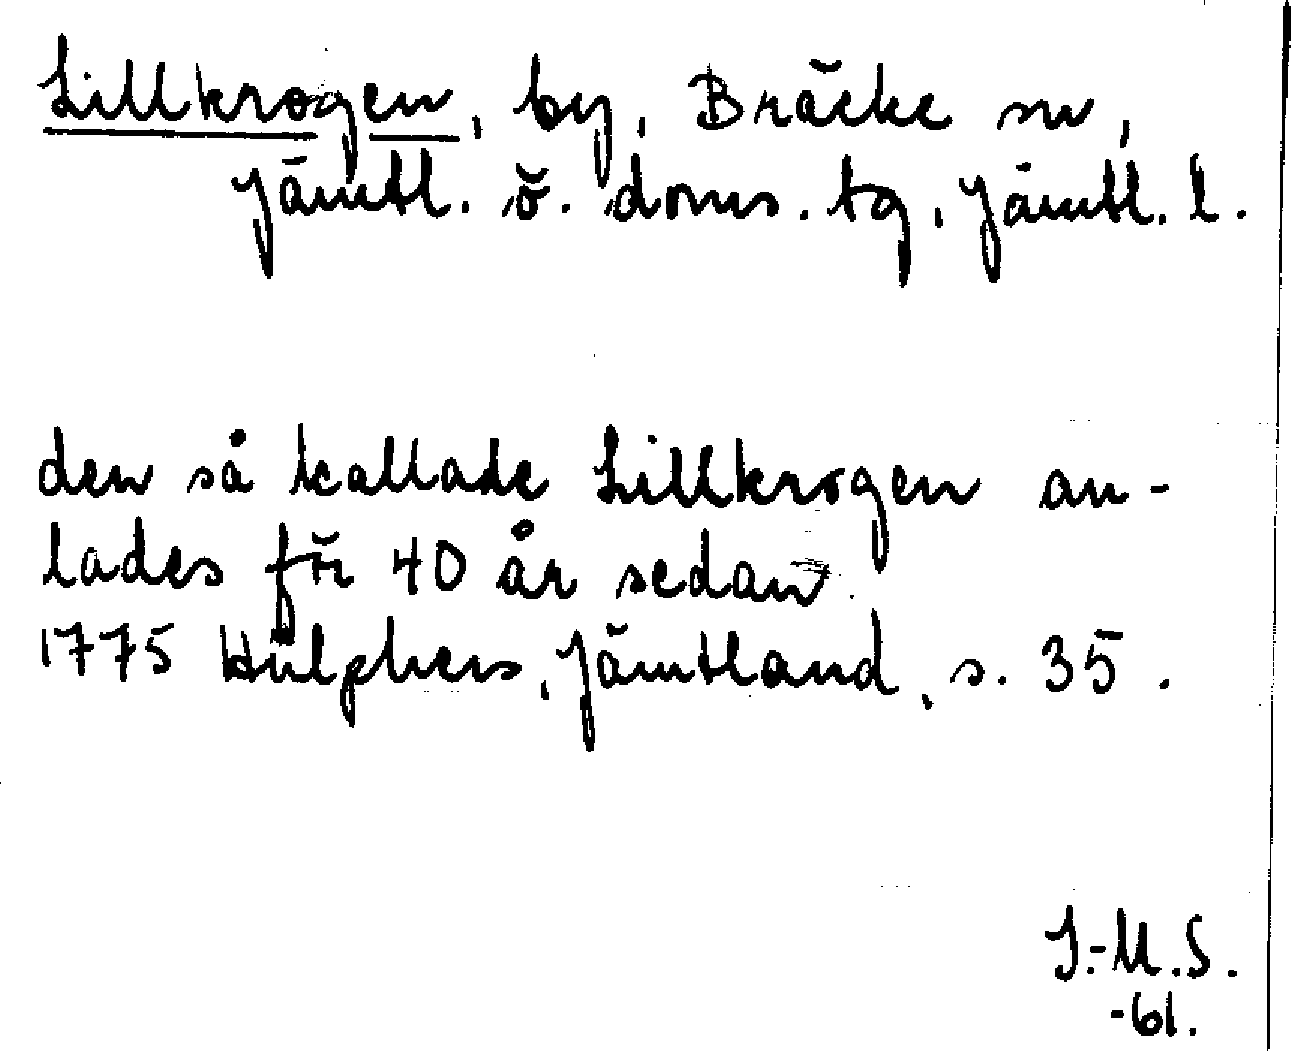 Lillkrogen, by, Bräcke sn,
Jämtl. ö. doms. tg, Jämtl. l.
den så kallade Lillkrogen an-
lades för 40 år sedan
1775 Hülphers, Jämtland, s. 35.
I.-M.S.
-61.